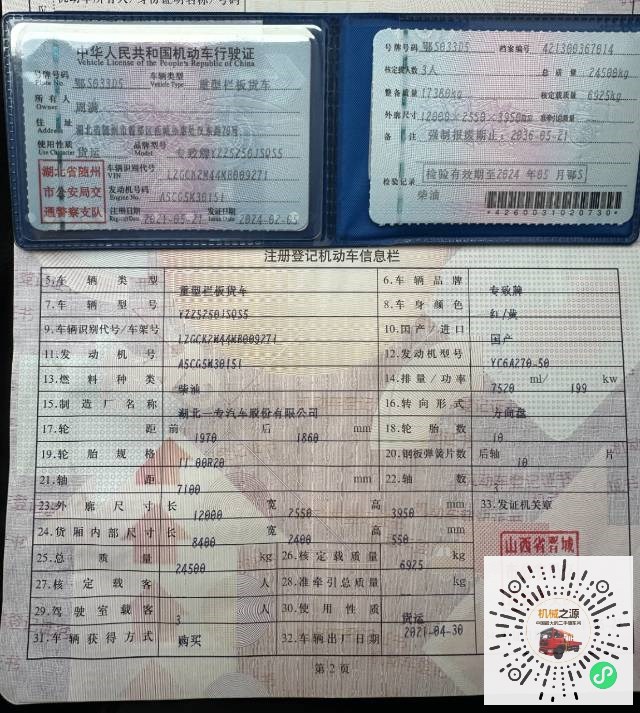 中华人民共和国机动车行驶证
Vehicle License of the People's Republic of China
号牌号码 鄂S033D5 车辆类型 重型栏板货车
Plate No. Vehicle Type
所有人 周满
Owner
住址
Address
使用性质 货运 品牌型号 专致牌YZZ5250JSQS5
Use Character Model
湖北省随州
市公安局交
通警察支队
车辆识别代号 LZGCK2M44MB009271
VIN
发动机号码 A5CG5M30151
Engine No.
注册日期 2021-05-21 发证日期 2024-02-05
Register Date Issue Date
号牌号码 鄂S033D5 档案编号 421300367014
核定载人数 3人 总质量 24500kg
整备质量 17380kg 核定载质量 6925kg
外廓尺寸 12000×2550×3950mm 准牵引总质量
备注 强制报废期止：2036-05-21
检验记录 检验有效期至2024年05月鄂S
柴油
*4260031020730*
注册登记机动车信息栏
5.车辆类型 重型栏板货车 6.车辆品牌 专致牌
7.车辆型号 YZZ5250JSQS5 8.车身颜色 红/黄
9.车辆识别代号/车架号 LZGCK2M44MB009271 10.国产/进口 国产
11.发动机号 A5CG5M30151 12.发动机型号 YC6A270-50
13.燃料种类 柴油 14.排量/功率 7520 ml/ 199 kw
15.制造厂名称 湖北一专汽车股份有限公司 16.转向形式 方向盘
17.轮距 前 1970 后 1860 mm 18.轮胎数 10
19.轮胎规格 11.00R20 20.钢板弹簧片数 后轴 10 片
21.轴距 7100 mm 22.轴数
23.外廓尺寸 长 12000 宽 2550 高 3950 mm 33.发证机关章
24.货厢内部尺寸 长 8400 宽 2400 高 550 mm
山西省晋城
25.总质量 24500 kg 26.核定载质量 6925 kg
27.核定载客 人 28.准牵引总质量 kg
29.驾驶室载客 3 人 30.使用性质 货运
31.车辆获得方式 购买 32.车辆出厂日期 2021-04-30
第2页
机械之源